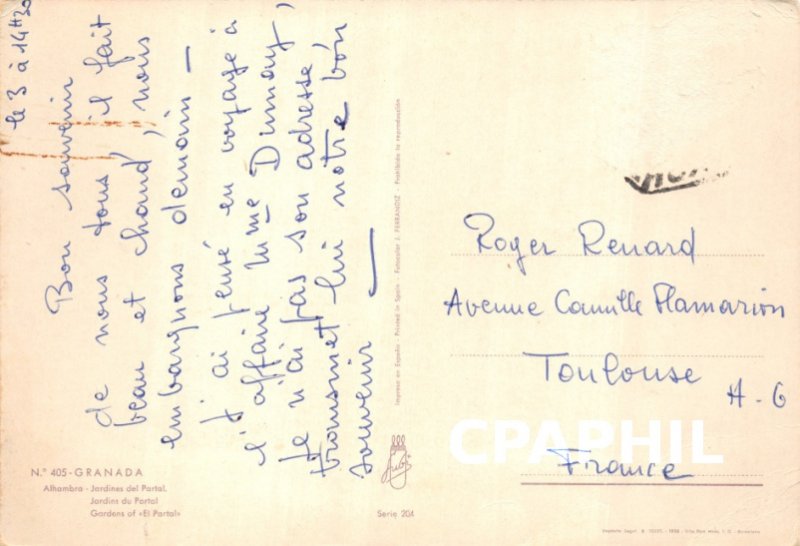 le 3 à 14H30
Bon souvenir
de nous tous, il fait
beau et chaud, nous
embarquons demain —
J'ai pensé en voyage à
l'affaire Mme Dumay,
Je n'ai pas son adresse,
transmet lui notre bon
souvenir —
Nº 405 - GRANADA
Alhambra - Jardines del Partal.
Jardins du Partal
Gardens of «El Partal»
Impreso en España - Printed in Spain - Fotocolor J. FERRANDIZ - Prohibida la reproducción
Serie 204
Roger Renard
Avenue Camille Flamarion
Toulouse
H-G
France
CPAPHIL